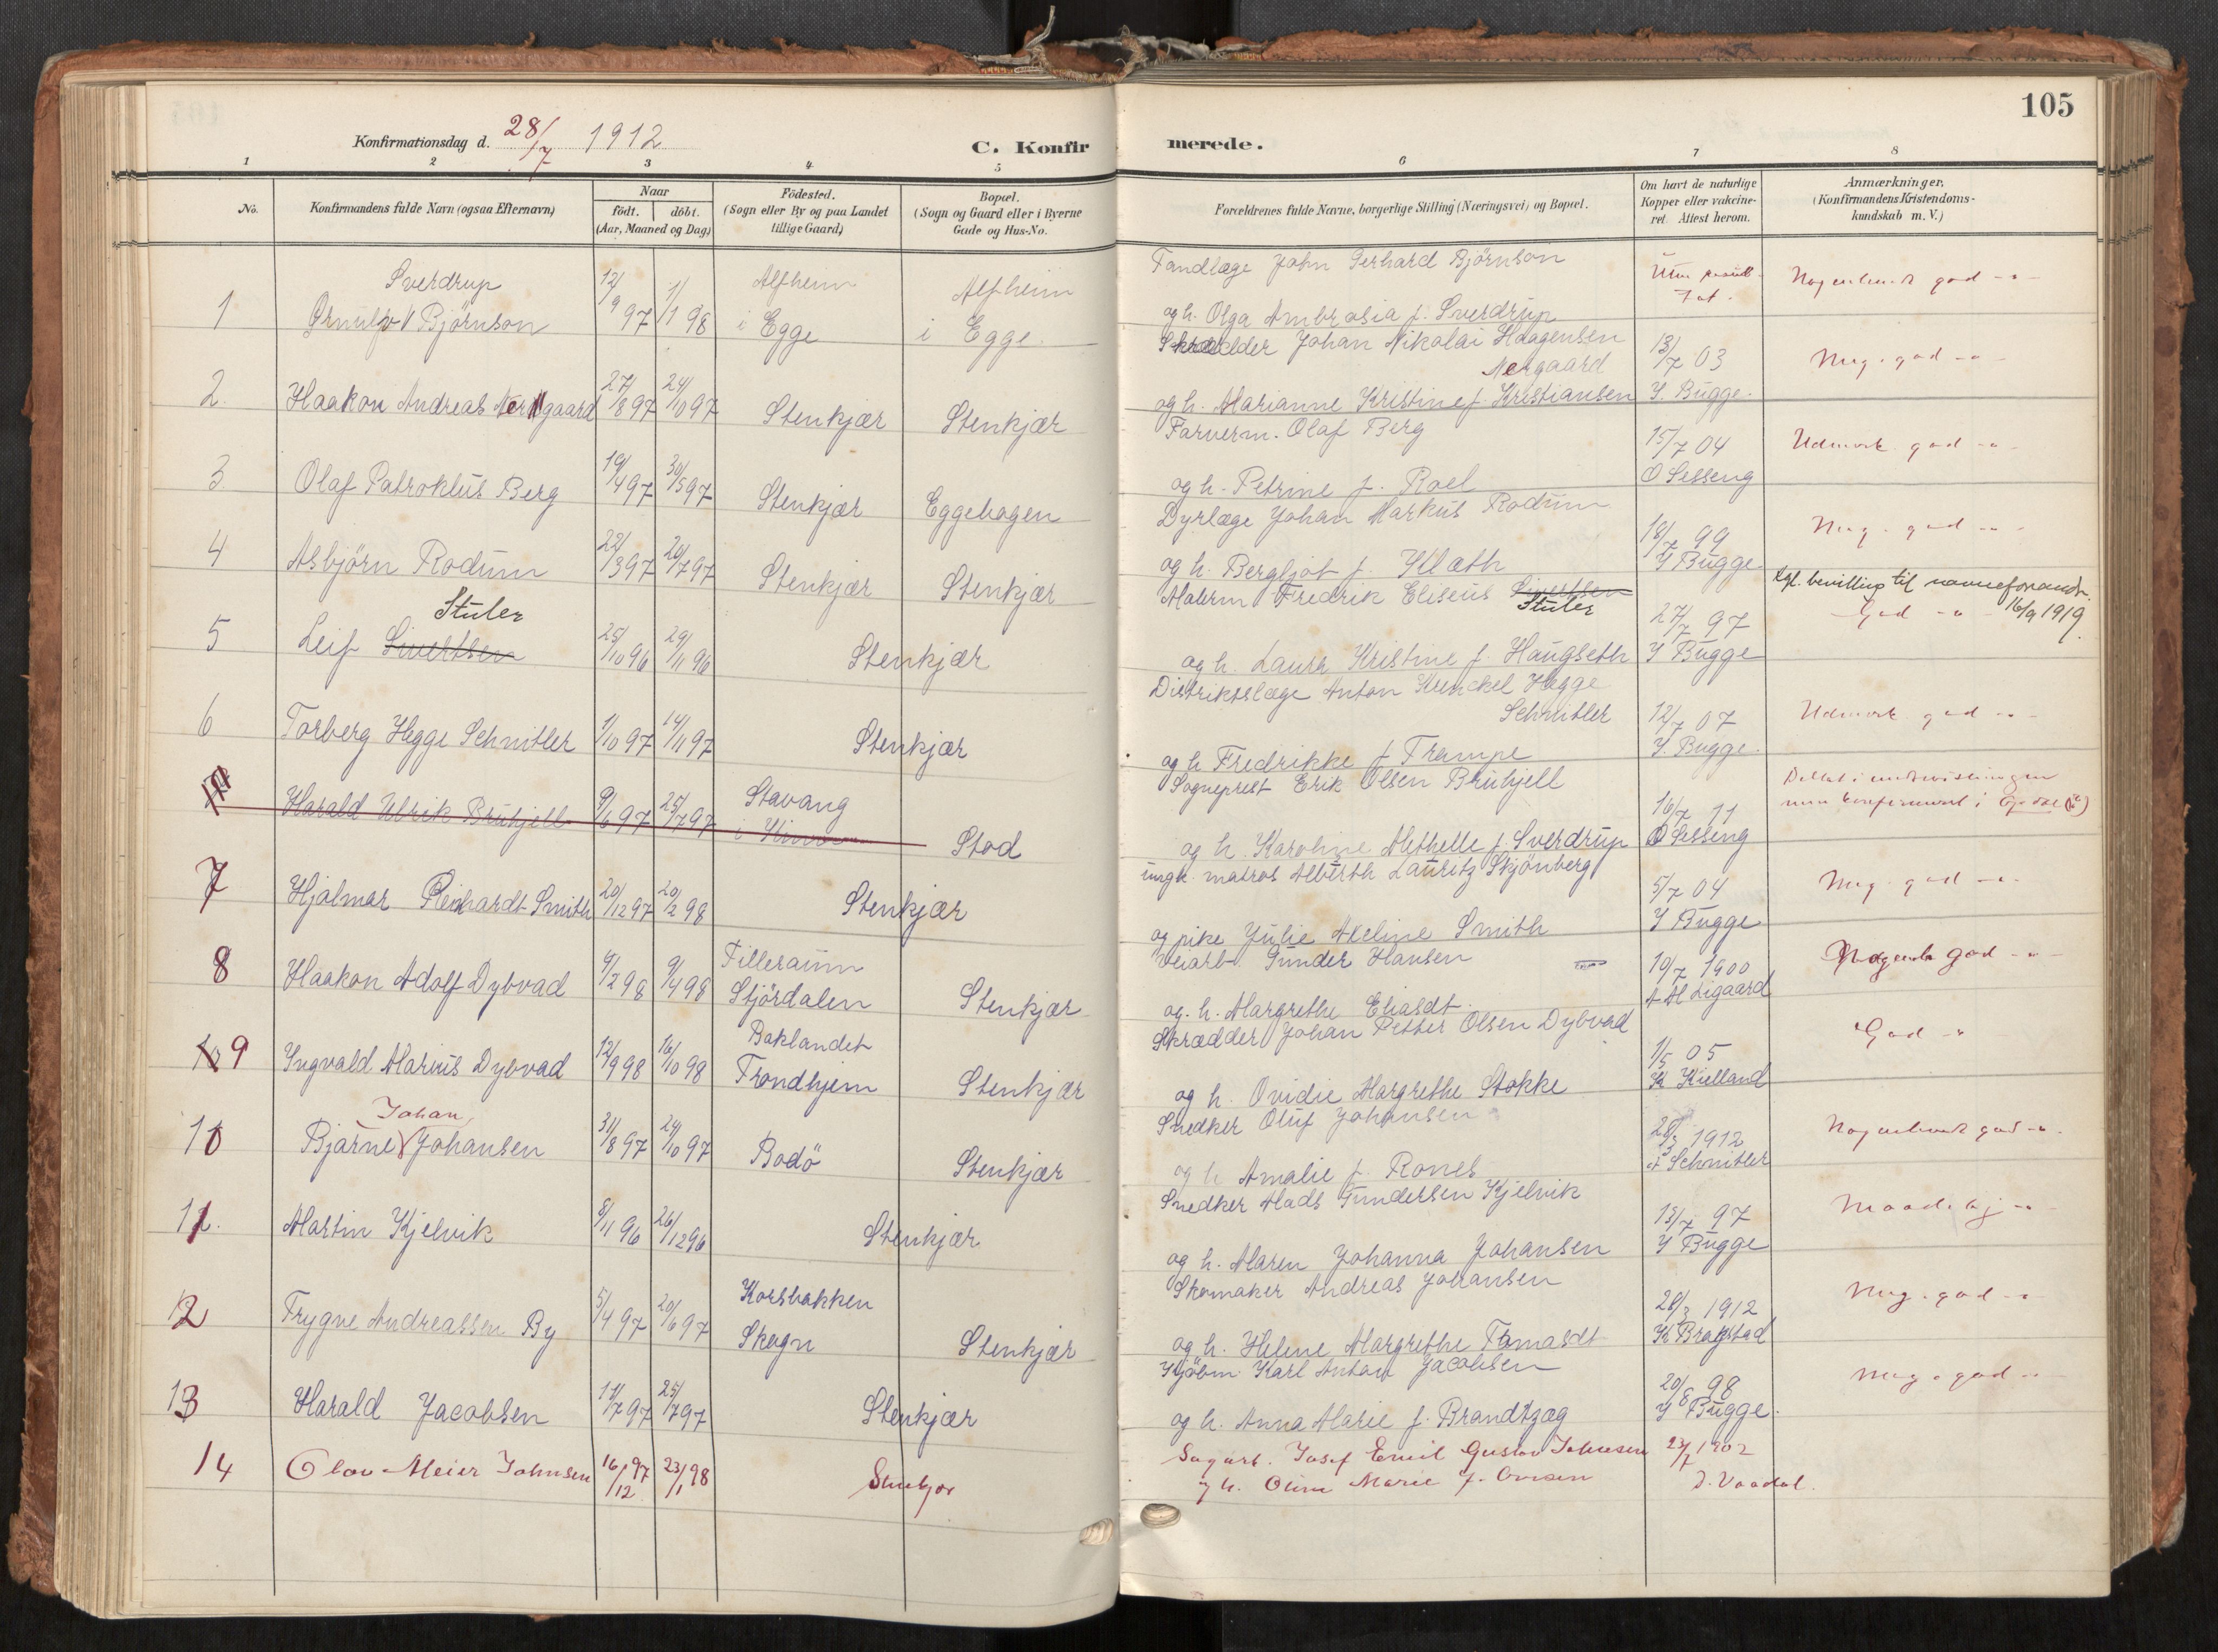 105
Konfirmationsdag d. 28/7 1912
C. Konfirmerede.
1 2 3 4 5 6 7 8
No.
Konfirmandens fulde Navn (ogsaa Efternavn)
Naar
födt. döbt.
(Aar, Maaned og Dag)
Födested.
(Sogn eller By og paa Landet
tillige Gaard)
Bopæl.
(Sogn og Gaard eller i Byerne
Gade og Hus-No.
Forældrenes fulde Navne, borgerlige Stilling (Næringsvei) og Bopæl.
Om havt de naturlige
Kopper eller vakcine-
ret. Attest herom.
Anmærkninger.
(Konfirmandens Kristendoms-
kundskab m. V.)
Sverdrup 12/9 97 1/1 98 Alfheim Alfheim Tandlæge John Gerhard Björnson
1 Björnson i Egge i Egge og h. Olga Ambrosia f. Sverdrup
Nogenlunde god -"-
Johan Nikolai Haagensen
Nergaard 13/7 03 Meg. god -"-
2. Haakon Andreas Nergaard 27/8 97 24/10 97 Stenkjær Stenkjær og h. Marianne Kristine f. Kristiansen Y. Bugge.
Farverm. Olaf Berg 15/7 04 Udmerk. god -"-
3. Olaf Patroklus Berg 19/4 97 30/5 97 Stenkjær Eggehagen og h. Petrine f. Roel O Sesseng
Dyrlæge Johan Markus Rodum 18/7 99 Meg. god -"-
4 Asbjörn Rodum 22/3 97 20/7 97 Stenkjær Stenkjær og h. Bergljot f. Y Bugge.
Malerm Fredrik Eliseus Sivertsen Stuler
Kgl. bevilling til navneforandr.
16/9 1919.
Stuler
5 Leif Sivertsen 25/10 96 29/11 96 Stenkjær 27/7 97 God -"-
og h. Laura Kristine f. Haugseth Y Bugge
Distriktslæge Anton Kunckel Hegge
Schnitler 12/7 07 Udmerk god -"-
6 Torberg Hegge Schnitler 1/10 97 14/11 97 Stenkjær og h Fredrikke f Trampe Y. Bugge.
Sogneprest Erik Olsen Bruhjell
Harald Ulrik Bruhjell 9/6 97 25/7 97 Stavang i Stod 16/7 11
og h. Karoline Methelle f. Sverdrup O Sesseng
ungk. matros Alberth Lauritz Skjönberg 5/7 04 Meg. god -"-
7 Hjalmar Reinhardt Smith 20/12 97 20/2 98 Stenkjær og pike Julie Aveline Smith Y Bugge
Gunder Hansen 10/7 1900 Nogenl. god -"-
8 Haakon Adolf Dybvad 9/2 98 9/4 98 Tilleraunn Stjördalen Stenkjær og. h. Margrethe Eliasdt. A M Ligaard
Skrædder Johan Petter Olsen Dybvad 1/5 05 God -"-
9 Ingvald Marius Dybvad 12/9 98 16/10 98 Baklandet Trondhjem Stenkjær og h. Ovidie Margrethe Stokke K Kielland
Snedker Oluf Johansen 1912 Nogenlunde god -"-
Johan
10 Bjarne Johansen 31/8 97 24/10 97 Bodö Stenkjær og h Amalie f. Rones A Schnitler
Snedker Mads Gundersen Kjelvik 13/7 97
11. Martin Kjelvik 8/11 96 26/12 96 Stenkjær og h. Maren Johanna Johansen Y Bugge
Skomaker Andreas Johansen 28/3 1912 Meg. god -"-
12 Trygve Andreassen By 5/4 97 20/6 97 Korsbakken Skogn Stenkjær og h. Helene Margrethe Tomasdt K Bragstad
Kjöbm. Karl Anton Jacobsen 20/8 98 Meg. god -"-
13 Harald Jacobsen 11/7 97 25/7 97 Stenkjær og h. Anna Marie f. Brandtzæg Y Bugge.
14 Olav Meier Johnsen 16/12 97 23/1 98 Stenkjær Sagarb. Josef Emil Gustav Johnsen 23/7 1902
og h. Oline Marie f. J. Vaadal.